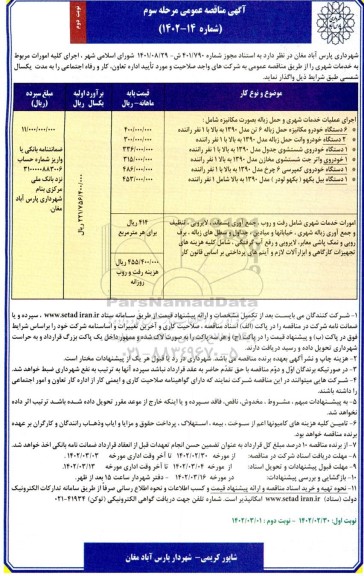 نوبت دوم
آگهی مناقصه عمومی مرحله سوم
(شماره ۱۴-۱۴۰۲)
شهرداری پارس آباد مغان در نظر دارد به استناد مجوز شماره ۴۰۱/۷۹۰ ش- ۱۴۰۱/۰۸/۲۹ شورای اسلامی شهر، اجرای کلیه امورات مربوط
به خدمات شهری را از طریق مناقصه عمومی به شرکت های واجد صلاحیت و مورد تأیید اداره تعاون، کار و رفاه اجتماعی را به مدت یکسال
شمسی طبق شرایط ذیل واگذار نماید.
موضوع و نوع کار
قیمت پایه ماهانه - ریال
برآورد اولیه یکسال ریال
مبلغ سپرده (ریال)
اجرای عملیات خدمات شهری و حمل زباله بصورت مکانیزه شامل:
۶ دستگاه خودرو مکانیزه حمل زباله ۶ تن مدل ۱۳۹۰ به بالا با ۱ نفر راننده
۴۰۰/۰۰۰/۰۰۰
۲ دستگاه خودرو وانت حمل زباله مدل ۱۳۹۰ به بالا با ۱ نفر راننده
۳۰۰/۰۰۰/۰۰۰
۱ دستگاه خودروی شستشوی جدول مدل ۱۳۹۰ به بالا با ۱ نفر راننده
۳۳۶/۰۰۰/۰۰۰
۱ خودروی واتر جت شستشوی مخازن مدل ۱۳۹۰ به بالا با ۱ نفر راننده
۳۱۵/۰۰۰/۰۰۰
۱ دستگاه خودروی کمپرسی ۶ چرخ مدل ۱۳۹۰ به بالا با ۱ نفر راننده
۴۸۶/۰۰۰/۰۰۰
۱ دستگاه بیل بکهو (بکهو لودر) مدل ۱۳۹۰ به بالا شامل ۱ نفر راننده
۴۵۳/۰۰۰/۰۰۰
۱۱/۰۰۰/۰۰۰/۰۰۰
ضمانتنامه بانکی یا
واریز شماره حساب
۳۱۰۰۰۰۸۸۳۰۰۶
نزد بانک ملی
مرکزی بنام
شهرداری پارس آباد
مغان
امورات خدمات شهری شامل رفت و روب، جمع آوری پسماند، لایروبی، تنظیف
و جمع آوری زباله شهری، خیابانها و میادین، جداول و سطل های زباله، برف
روبی و نمک پاشی معابر، لایروبی و رفع آب گرفتگی، شامل کلیه هزینه های
تجهیزات کارگاهی و ابزارآلات لازم و آیتم های پرداختی بر اساس قانون کار
۴۱۴ ریال
برای هر مترمربع
۴۵۵/۴۰۰/۰۰۰ ریال
هزینه رفت و روب
روزانه
ParsNamadData
۰۲۱-۸۸۳۴۹۶۷۰-۵
۱- شرکت کنندگان می بایست بعد از تکمیل مشخصات و ارائه پیشنهاد قیمت از طریق سامانه ستاد www.setad iran.ir، سپرده و یا
ضمانت نامه شرکت در مناقصه را در پاکت (الف) اسناد مناقصه، صلاحیت کاری و آخرین تغییرات و اساسنامه شرکت خود را براساس شرایط
فوق در پاکت (ب) و پیشنهاد قیمت را در پاکت (ج) و هر سه پاکت را به صورت لاک شده و ممهور داخل یک پاکت بزرگ قرارداد و به حراست
شهرداری تحویل داده و رسید دریافت دارند.
۲- هزینه چاپ و نشر آگهی بعهده برنده مناقصه می باشد. شهرداری در رد یا قبول هر یک از پیشنهادات مختار است.
۳- در صورتیکه برندگان اول و دوم مناقصه با حق تقدم حاضر به عقد قرارداد نباشد سپرده آنها به ترتیب به نفع شهرداری ضبط خواهد شد.
۴- شرکت های میتوانند در این مناقصه شرکت نمایند که دارای گواهینامه صلاحیت کاری و ایمنی کار از اداره کار تعاون و امور اجتماعی
را داشته باشند.
۵- به پیشنهادات مبهم، مشروط، مخدوش، ناقص، فاقد سپرده و یا اینکه خارج از موعد مقرر تحویل داده شده باشد ترتیب اثر داده
نخواهد شد.
۶- تامین کلیه هزینه های کامیونها اعم از سوخت، بیمه، استهلاک، پرداخت حقوق و مزایا و ایاب وذهاب رانندگان و کارگران بر عهده
برنده مناقصه خواهد بود.
۷- از برنده مناقصه ۱۰ درصد مبلغ کل قرارداد به عنوان تضمین حسن انجام تعهدات قبل از انعقاد قرارداد ضمانت نامه بانکی اخذ خواهد شد.
۸- مهلت دریافت اسناد شرکت در مناقصه: از مورخه ۱۴۰۲/۰۲/۳۰ تا آخر وقت اداری مورخه ۱۴۰۲/۰۳/۰۳
۹- مهلت قبول پیشنهادات و تحویل اسناد: از مورخه ۱۴۰۲/۰۳/۰۴ تا آخر وقت اداری مورخه ۱۴۰۲/۰۳/۱۳
۱۰- بازگشایی و بررسی پیشنهادات: در مورخه ۱۴۰۲/۰۳/۱۶ - دفتر شهردار ساعت ۱۵ بعد از ظهر.
۱۱- نحوه تهیه و خرید اسناد مناقصه و ارائه پیشنهاد قیمت و کسب اطلاعات و نحوه اطلاع رسانی صرفا از طریق سامانه تدارکات الکترونیک
دولت (ستاد) www.setad iran.ir امکانپذیر است. شماره تلفن جهت دریافت گواهی الکترونیکی (توکن) ۴۱۹۳۴-۰۲۱
نوبت اول: ۱۴۰۲/۰۲/۳۰ - نوبت دوم: ۱۴۰۲/۰۳/۰۱
شاپور کریمی- شهردار پارس آباد مغان